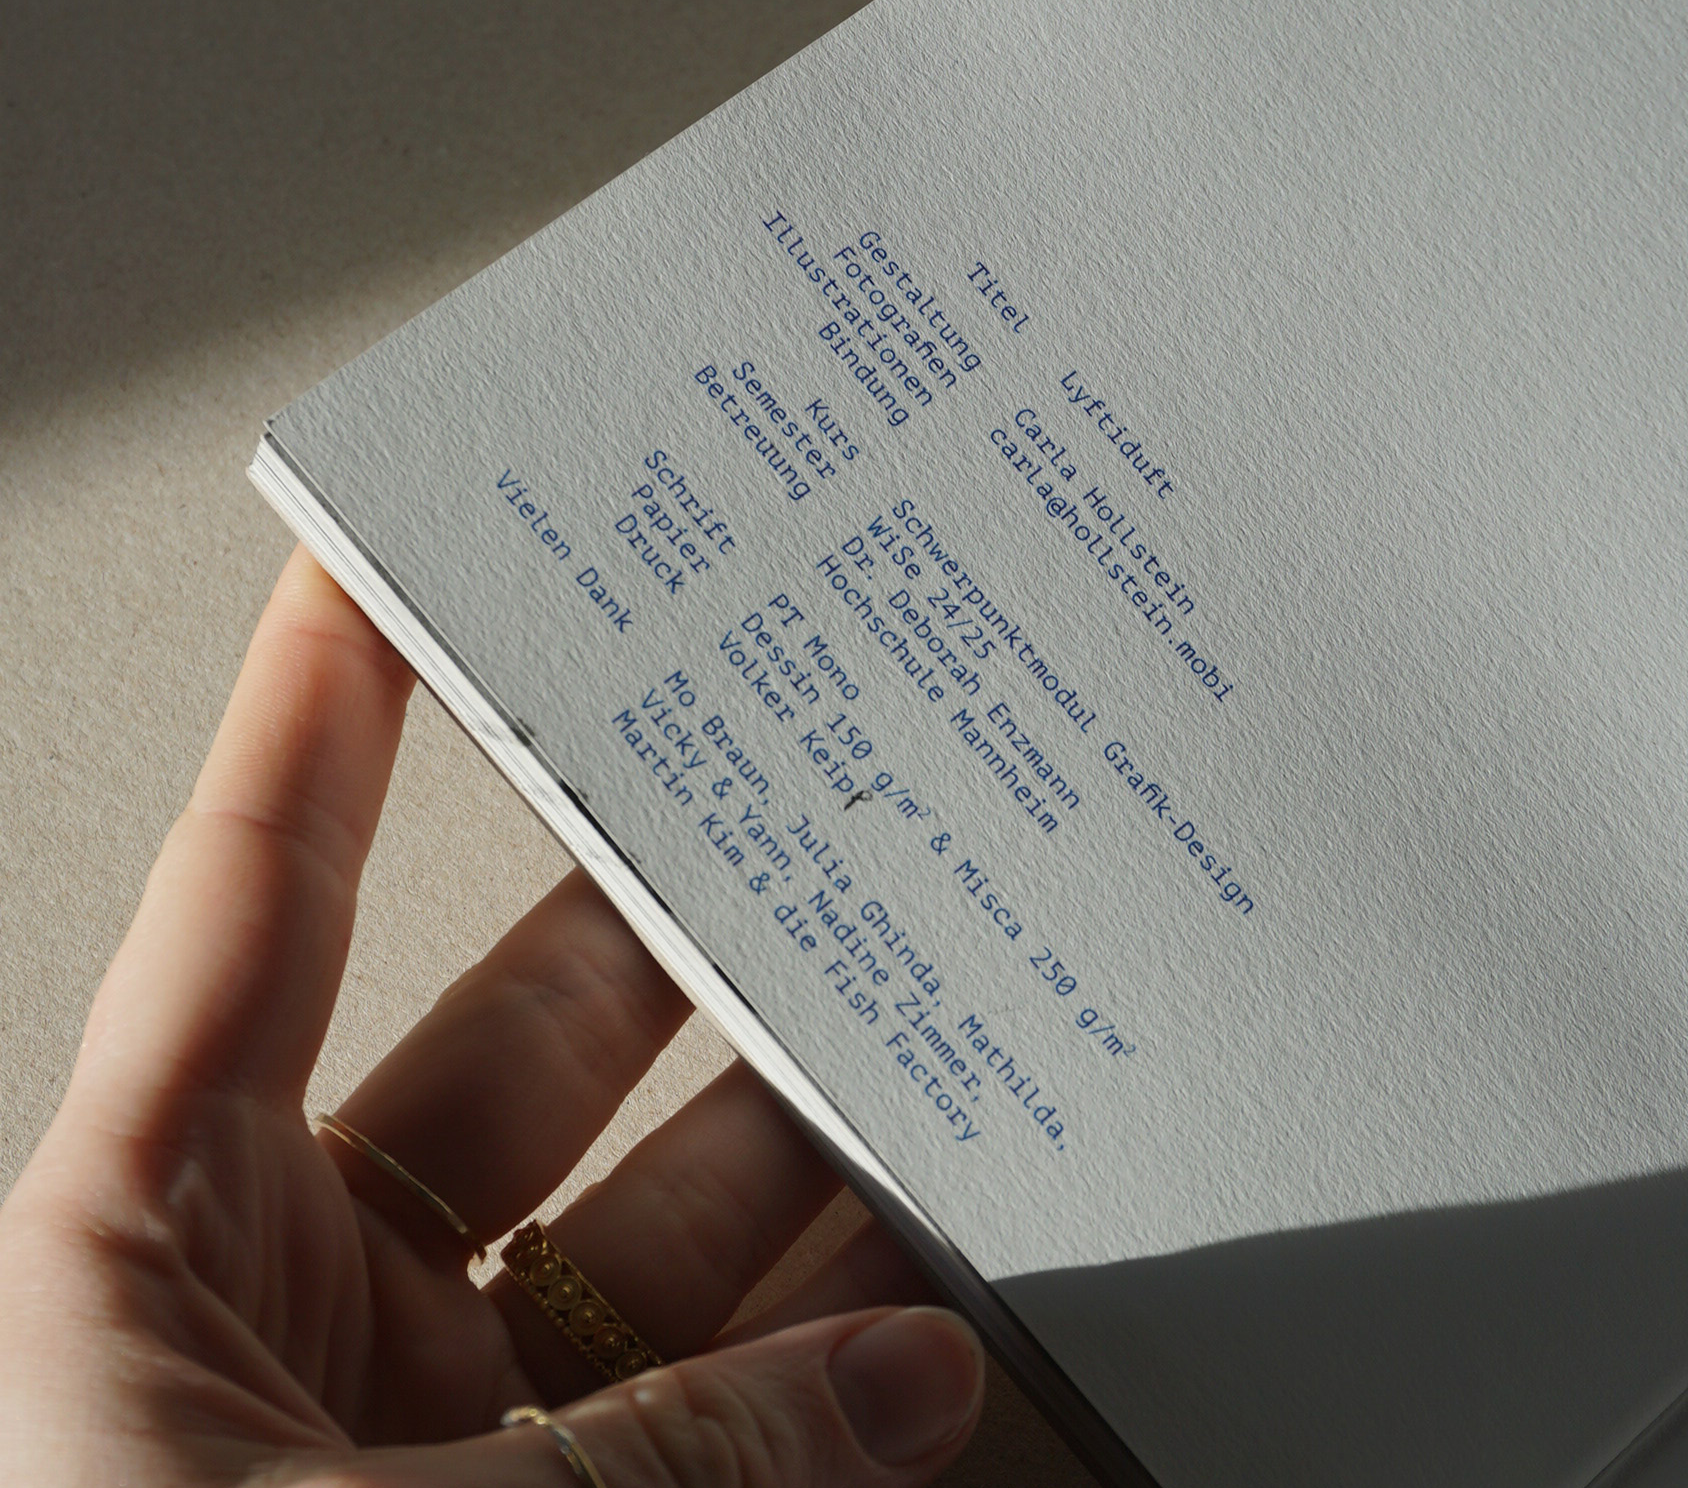 Titel Lyftiduft
Gestaltung Carla Hollstein
Fotografien carla@hollstein.mobi
Illustrationen
Bindung
Kurs Schwerpunktmodul Grafik-Design
Semester WiSe 24/25
Betreuung Dr. Deborah Enzmann
Hochschule Mannheim
Schrift PT Mono
Papier Dessin 150 g/m² & Misca 250 g/m²
Druck Volker Keipp
Vielen Dank Mo Braun, Julia Ghinda, Mathilda,
Vicky & Yann, Nadine Zimmer,
Martin Kim & die Fish Factory